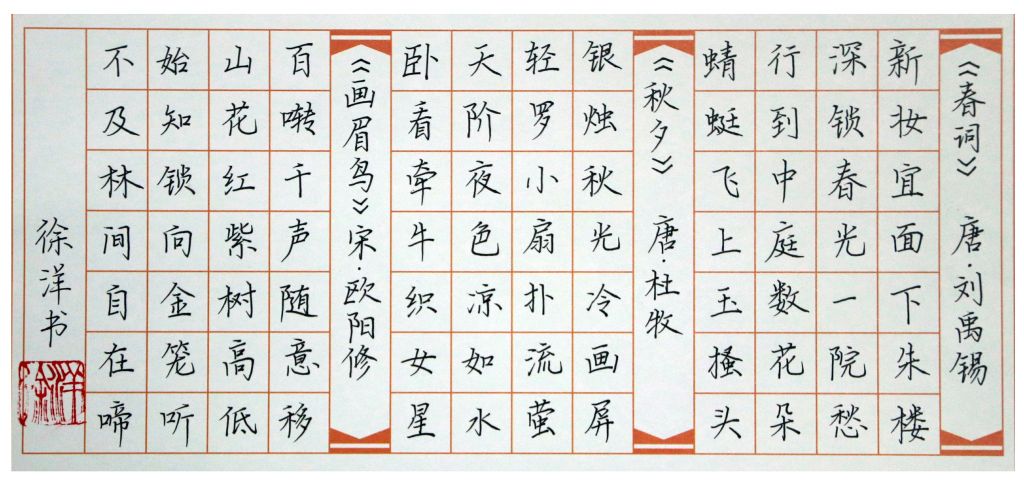 《春词》 唐·刘禹锡
新妆宜面下朱楼
深锁春光一院愁
行到中庭数花朵
蜻蜓飞上玉搔头
《秋夕》 唐·杜牧
银烛秋光冷画屏
轻罗小扇扑流萤
天阶夜色凉如水
卧看牵牛织女星
《画眉鸟》宋·欧阳修
百啭千声随意移
山花红紫树高低
始知锁向金笼听
不及林间自在啼
徐洋书